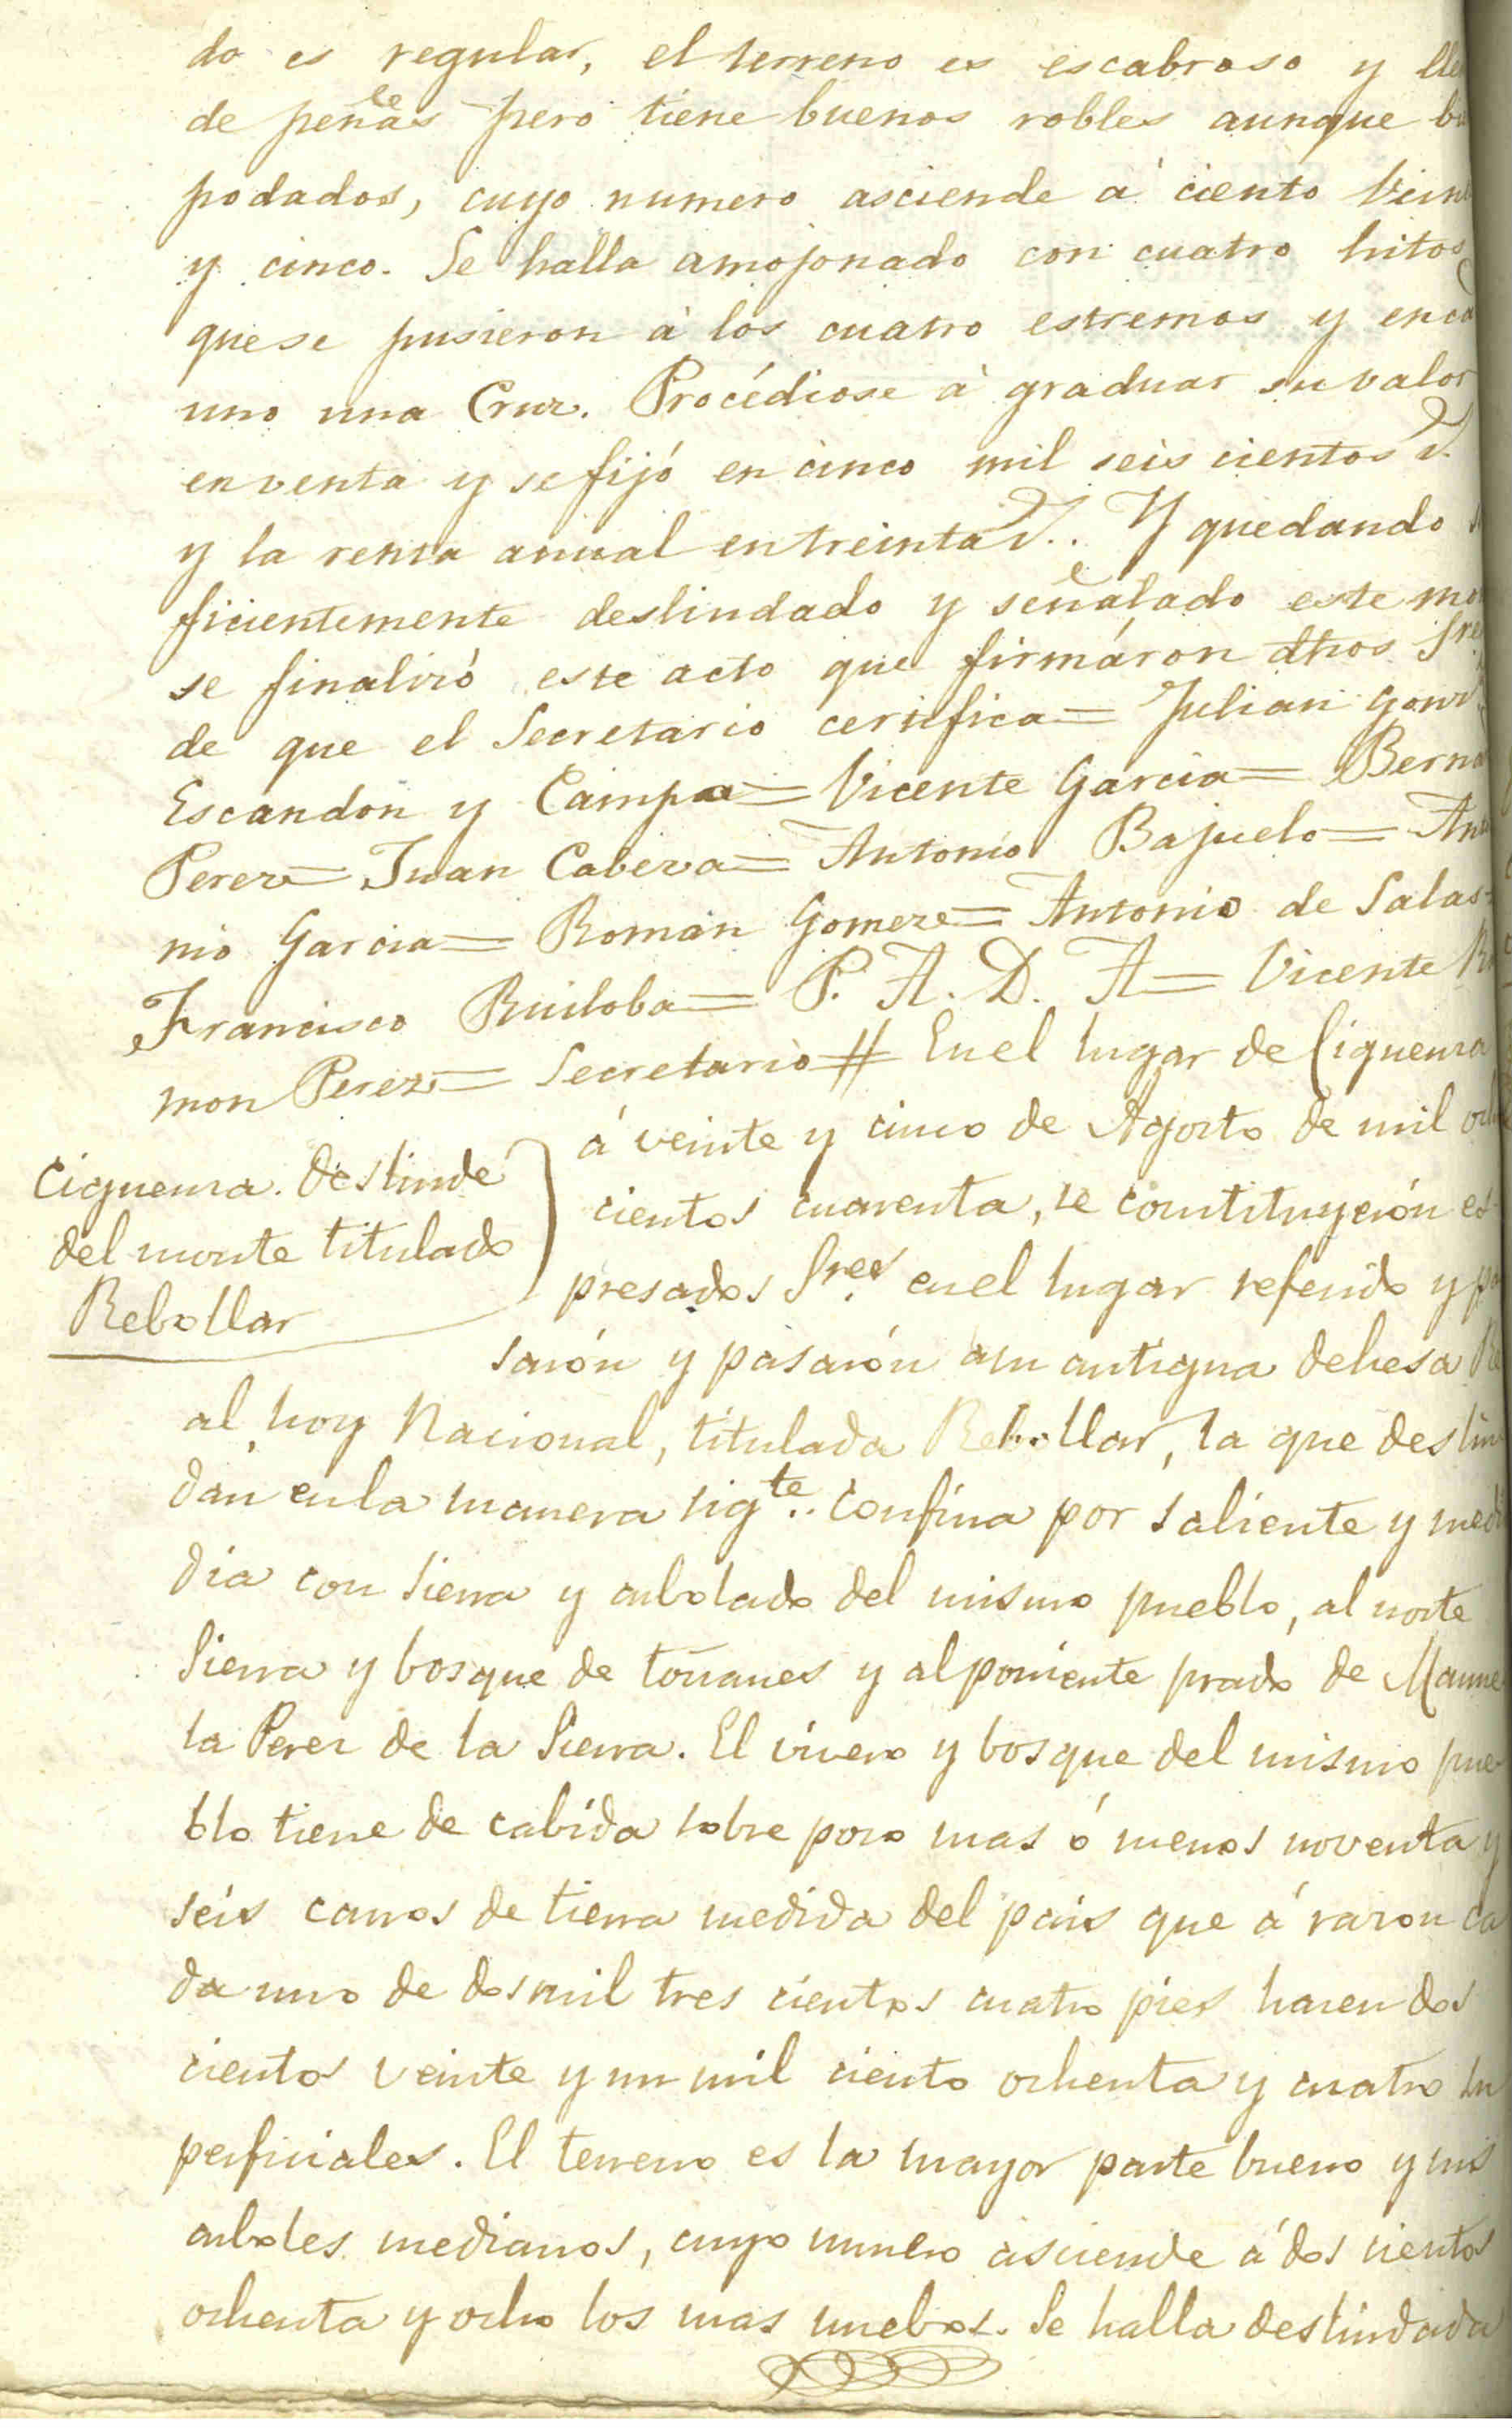 do es regular, el terreno es escabroso y lle
de peñas pero tiene buenos robles aunque bi
podados, cuyo numero asciende á ciento Vein
y cinco. Se halla amojonado con cuatro hitos
que se pusieron á los cuatro estremos y en ca
uno una Cruz. Procédiose á graduar su valor
en venta y se fijó en cinco mil seis cientos r.
y la renta anual en treinta r.. Y quedando s
ficientemente deslindado y señalado este mon
se finalizó este acto que firmáron dhos Sres
de que el Secretario certifica= Julian Gonz
Escandon y Campa= Vicente Garcia= Berna
Perez= Juan Cabeza= Antonio Bajuelo= Anto
nio Garcia= Román Gomez= Antonio de Salas=
Francisco Ruiloba= P. A. D. A= Vicente Ra
mon Perez= Secretario# En el lugar de Ciguenza
á veinte y cinco de Agosto de mil och
cientos cuarenta, se constituyerón es
presados Sres. en el lugar referido y pa
sarón y pasarón a su antigua dehesa Re
al, hoy Nacional, titulada Rebollar, la que deslin
dan en la manera sigte.. Confina por saliente y medi
dia con Sierra y arbolado del mismo pueblo, al norte
Sierra y bosque de toñanes y al poniente prado de Manue
la Perez de la Sierra. El vivero y bosque del mismo pue
blo tiene de cabida sobre poco mas ó menos noventa y
seis carros de tierra medida del pais que á razon ca
da uno de dos mil tres cientos cuatro pies hacen dos
cientos veinte y un mil ciento ochenta y cuatro su
perficiales. El terreno es la mayor parte bueno y sus
arboles medianos, cuyo numero asciende á dos cientos
ochenta y ocho los mas nuebos. Se halla deslindada
Ciguenza. Deslinde
del monte titulado
Rebollar